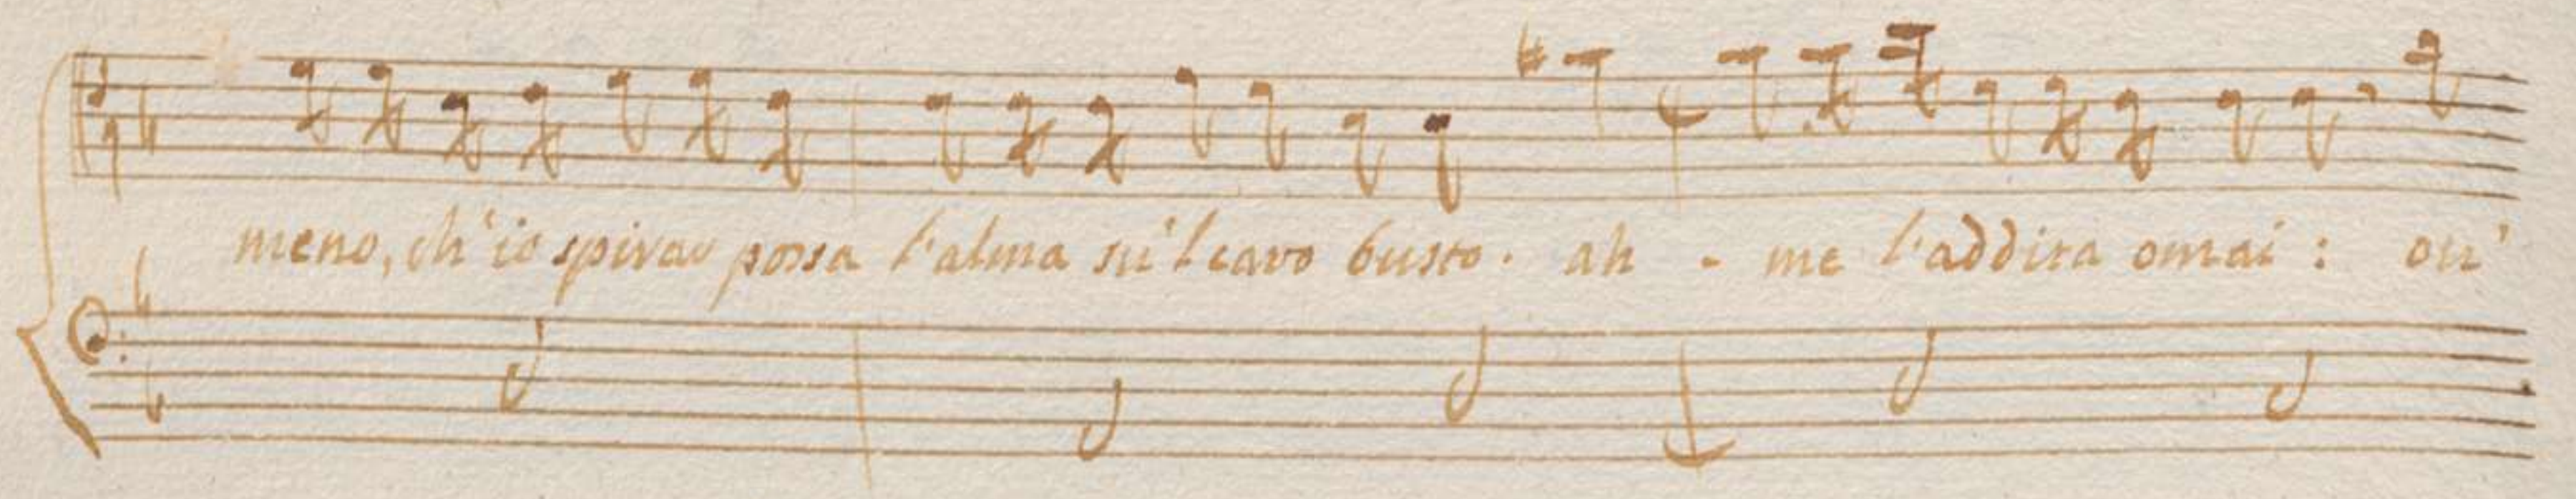 meno, ch'io spirar possa l'alma su'l caro busto. ah - me l'addita omai : ou'